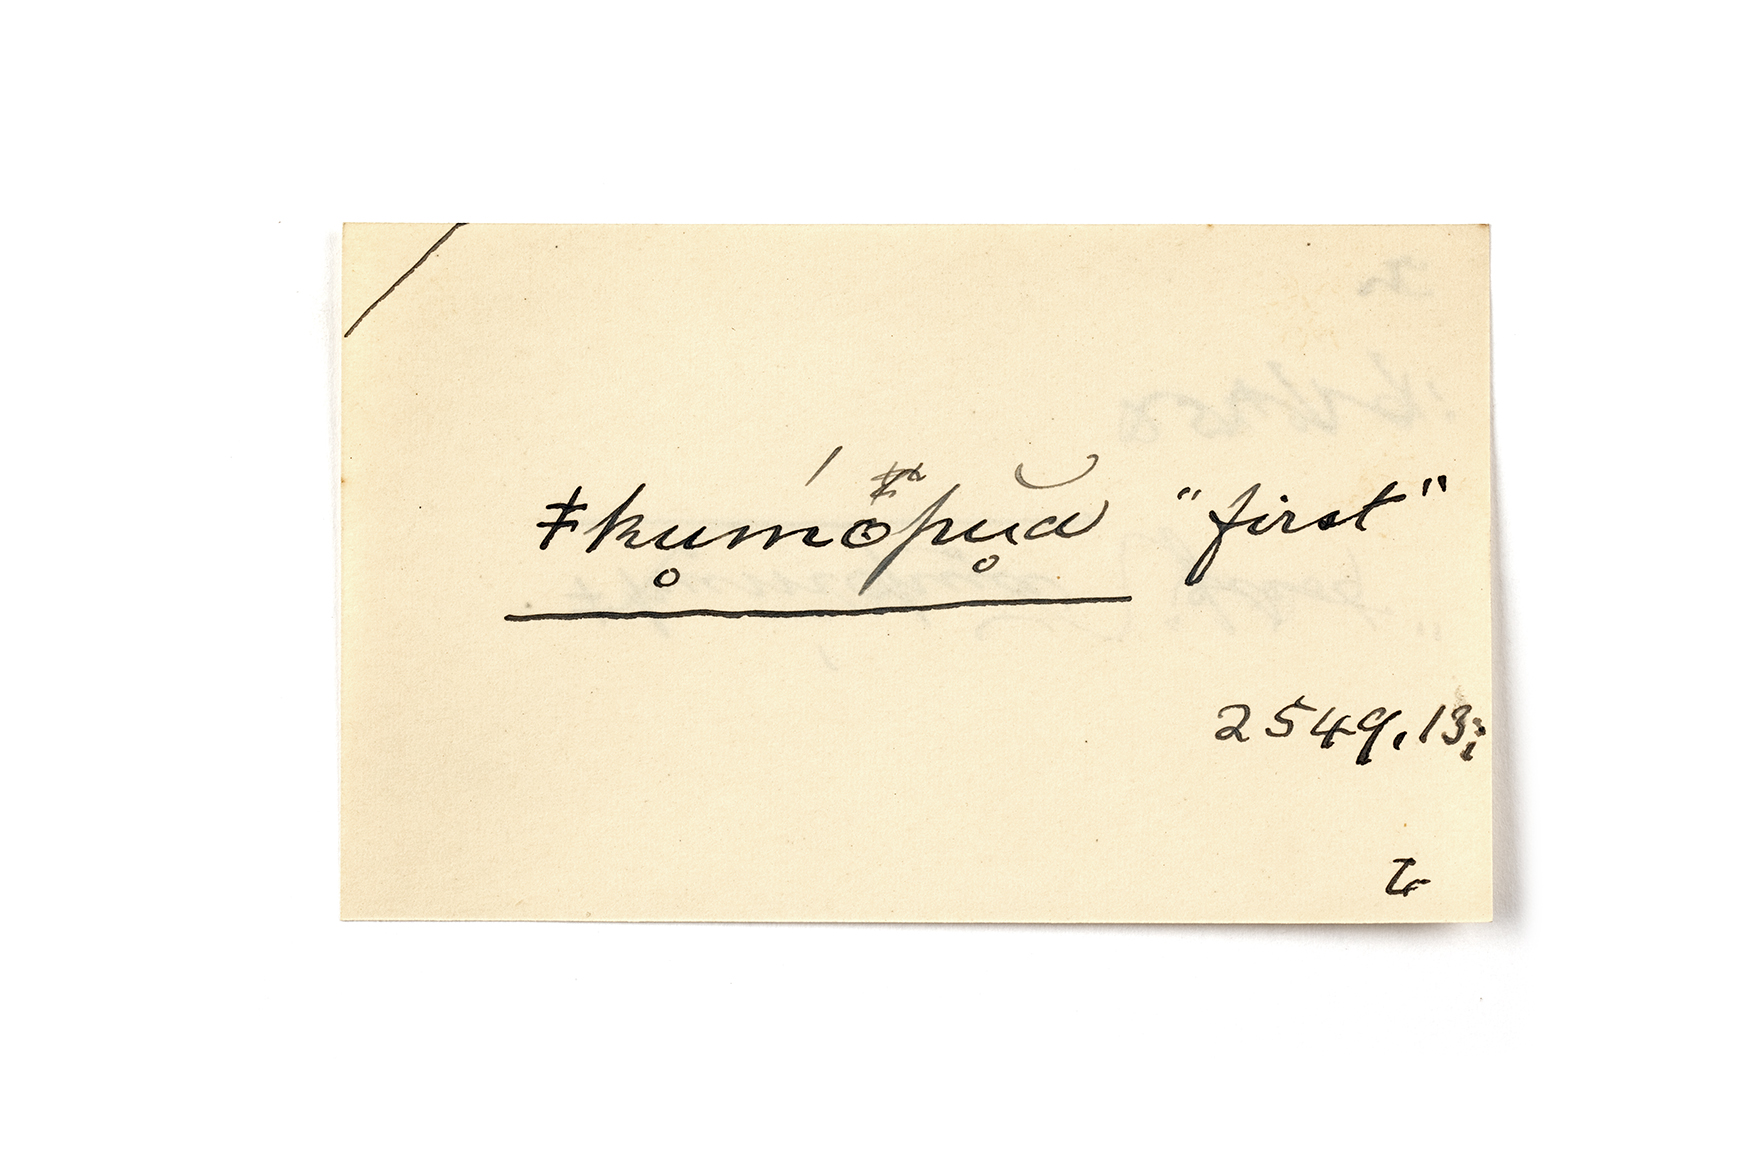 ≠ku̥mópu̥ă "first"
2549.13;